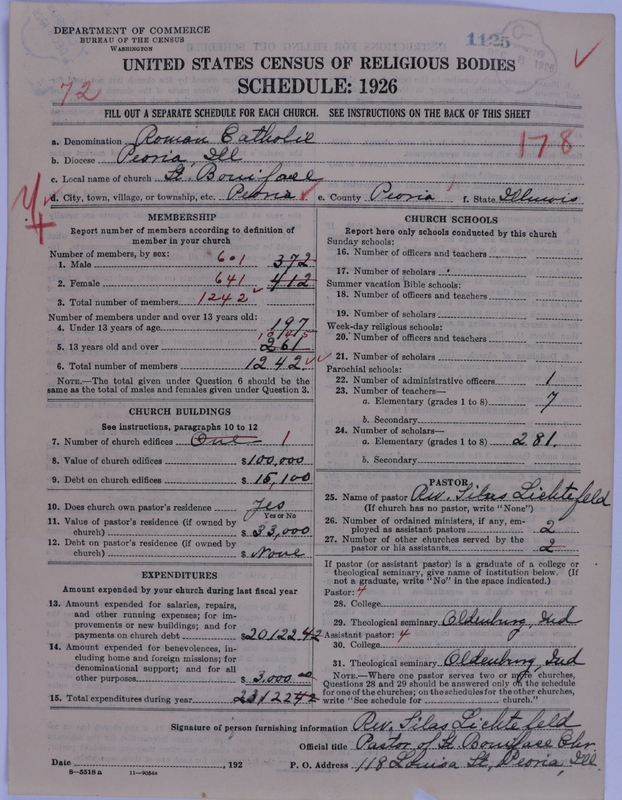 DEPARTMENT OF COMMERCE
BUREAU OF THE CENSUS
WASHINGTON
1125
1926
UNITED STATES CENSUS OF RELIGIOUS BODIES
SCHEDULE: 1926
72
FILL OUT A SEPARATE SCHEDULE FOR EACH CHURCH. SEE INSTRUCTIONS ON THE BACK OF THIS SHEET
178
a. Denomination Roman Catholic
b. Diocese Peoria, Ill
c. Local name of church St. Boniface
d. City, town, village, or township, etc. Peoria e. County Peoria f. State Illinois
MEMBERSHIP
Report number of members according to definition of member in your church
Number of members, by sex:
1. Male 601 372
2. Female 641 412
3. Total number of members 1242
Number of members under and over 13 years old:
4. Under 13 years of age 197
5. 13 years old and over 1045 261
6. Total number of members 1242
NOTE.—The total given under Question 6 should be the same as the total of males and females given under Question 3.
CHURCH BUILDINGS
See instructions, paragraphs 10 to 12
7. Number of church edifices One 1
8. Value of church edifices $100,000
9. Debt on church edifices $15,100
10. Does church own pastor's residence Yes
Yes or No
11. Value of pastor's residence (if owned by church) $33,000
12. Debt on pastor's residence (if owned by church) $None
EXPENDITURES
Amount expended by your church during last fiscal year
13. Amount expended for salaries, repairs, and other running expenses; for improvements or new buildings; and for payments on church debt $20122.42
14. Amount expended for benevolences, including home and foreign missions; for denominational support; and for all other purposes $3,000.00
15. Total expenditures during year 23122 42
CHURCH SCHOOLS
Report here only schools conducted by this church
Sunday schools:
16. Number of officers and teachers
17. Number of scholars
Summer vacation Bible schools:
18. Number of officers and teachers
19. Number of scholars
Week-day religious schools:
20. Number of officers and teachers
21. Number of scholars
Parochial schools:
22. Number of administrative officers 1
23. Number of teachers—
a. Elementary (grades 1 to 8) 7
b. Secondary
24. Number of scholars—
a. Elementary (grades 1 to 8) 281.
b. Secondary
PASTOR
25. Name of pastor Rev. Filas Lichtefeld
(If church has no pastor, write "None")
26. Number of ordained ministers, if any, employed as assistant pastors 2
27. Number of other churches served by the pastor or his assistants 2
If pastor (or assistant pastor) is a graduate of a college or theological seminary, give name of institution below. (If not a graduate, write "No" in the space indicated.)
Pastor: 4
28. College
29. Theological seminary Oldenburg, Ind
Assistant pastor: 4
30. College
31. Theological seminary Oldenburg, Ind
NOTE.—Where one pastor serves two or more churches, Questions 28 and 29 should be answered only on the schedule for one of the churches; on the schedules for the other churches, write "See schedule for church."
Signature of person furnishing information Rev. Filas Lichtefeld
Official title Pastor of St. Boniface Chr.
Date , 192 P. O. Address 118 Louisa St, Peoria, Ill.
8-5518 a 11-90544